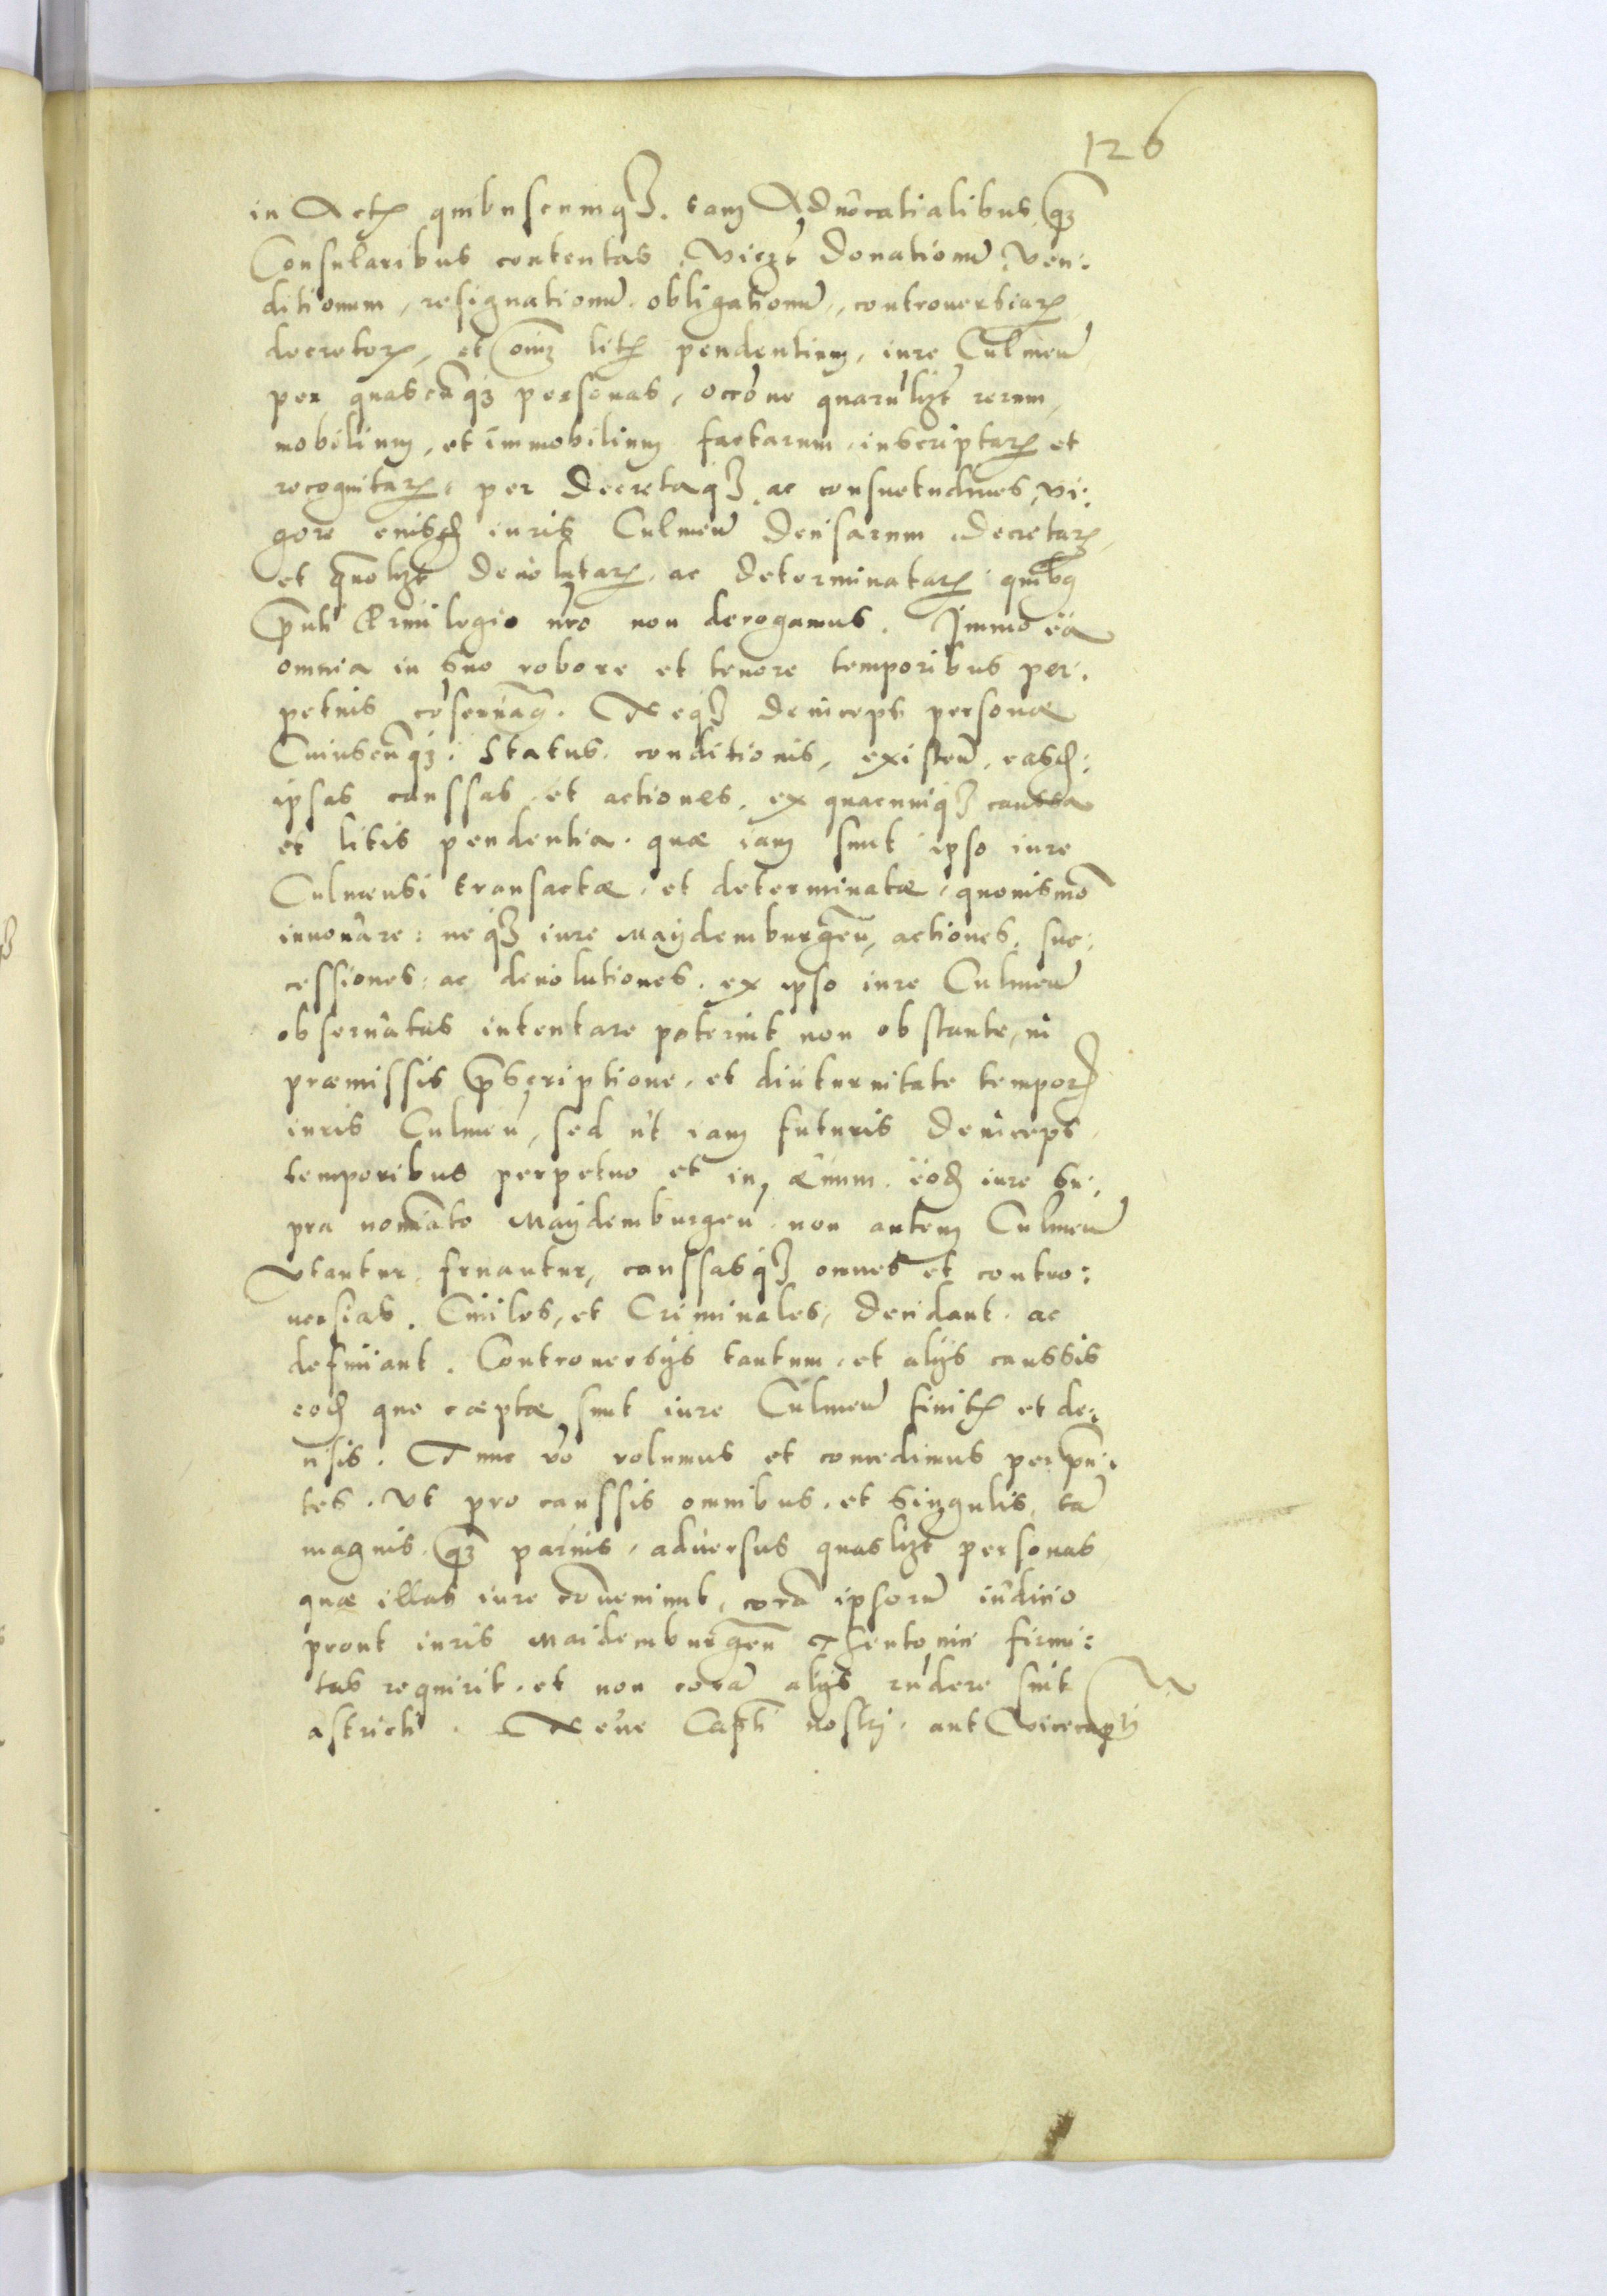 126
in Actꝭ quibuscumqꝫ. tam Aduocatialibus, qꝫ
Consularibus contentas. Viczt Donationũ, Ven:
ditionum, resignationũ. obligationũ, controuersiarꝝ
decretorꝝ, et oĩm litꝭ pendentium, iure Culmeñ
per quascũqꝫ personas, occõne quarũlizt rerum,
mobilium, et immobilium factarum. inscriptarꝝ et
recognitarꝝ, per Decretaqꝫ ac consuetudines, vi:
gore eiusđ iuris Culmeñ Decisarum Decretarꝝ,
et quolizt Deuolutarꝝ, ac Determinatarꝝ quibꝯ
p̃nti Priuilegio nro non derogamus. Immo ea
omnia in suo robore et tenore temporibus per:
petuis cõseruãꝯ. Neqꝫ Deinceps personæ
Cuiuscũqꝫ. Status. conditionis, existeñ. easđ:
ipsas caussas et actiones, ex quacumqꝫ caussa
et litis pendentia. quæ iam sunt ipso iure
Culmensi transactæ, et determinatæ, quouismõ
innouare: neqꝫ iure Maÿdemburgeñ, actiones, suc:
cessiones, ac deuolutiones. ex ipso iure Culmeñ
obseruatas intentare poterint non obstante, in
præmissis p̃scriptione, et diuturnitate temporꝭ
iuris Culmeñ, sed ut iam futuris Deinceps
temporibus perpetuo et in æuum. eođ iure su:
pra nomiãto Maÿdemburgeñ. non autem Culmeñ
Vtantur, fruantur, caussasqꝫ omnes et contro:
uersias. Ciuiles, et Criminales, Decidant. ac
definiant. Controuersÿs tantum, et alÿs caussis
eođ quo cæptæ sunt iure Culmeñ finitꝭ et de:
cisis. Tunc vo volumus et concedimus per p̃n:
tes. Vt pro caussis omnibus. et singulis, tã
magnis, qꝫ paruis, aduersus quaslizt personas
quæ illas iure cõueniunt, corã ipsorũ iudicio
prout iuris Maidemburgeñ Theutonici firmi:
tas requirit. et non corã alÿs rñdere sint
astricti. Neue Capti nostrj. aut Vicecapti